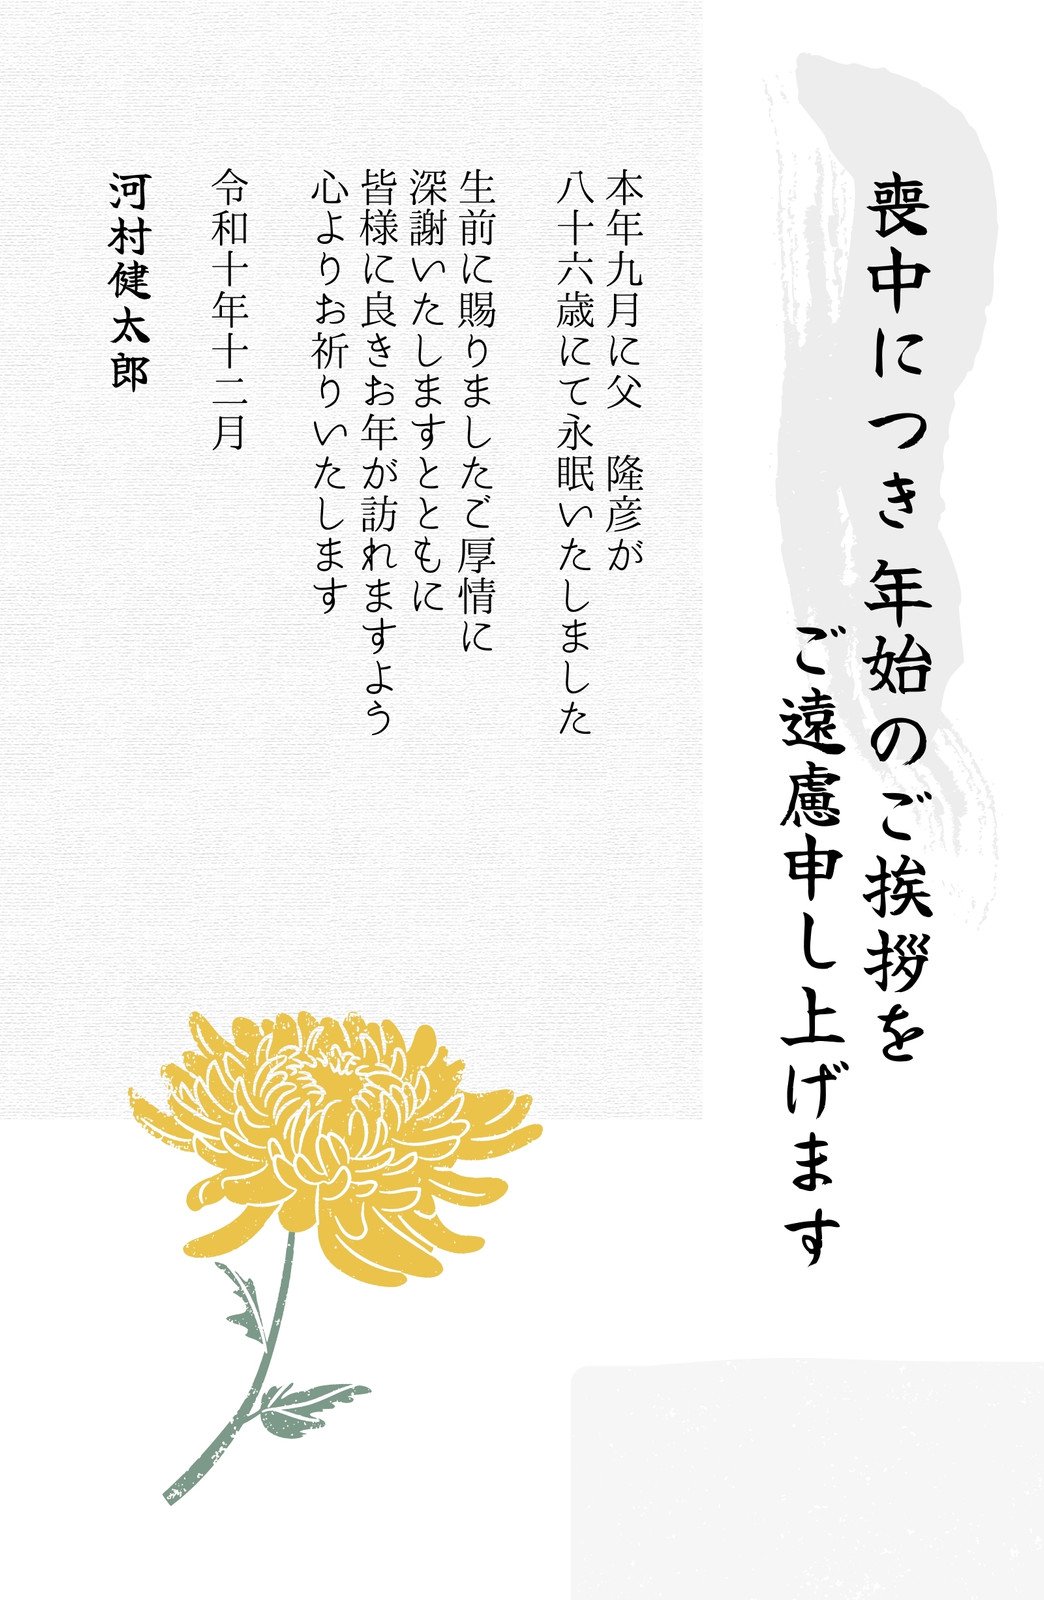 喪中につき年始のご挨拶を
ご遠慮申し上げます
本年九月に父　隆彦が
八十六歳にて永眠いたしました
生前に賜りましたご厚情に
深謝いたしますとともに
皆様に良きお年が訪れますよう
心よりお祈りいたします
令和十年十二月
河村健太郎